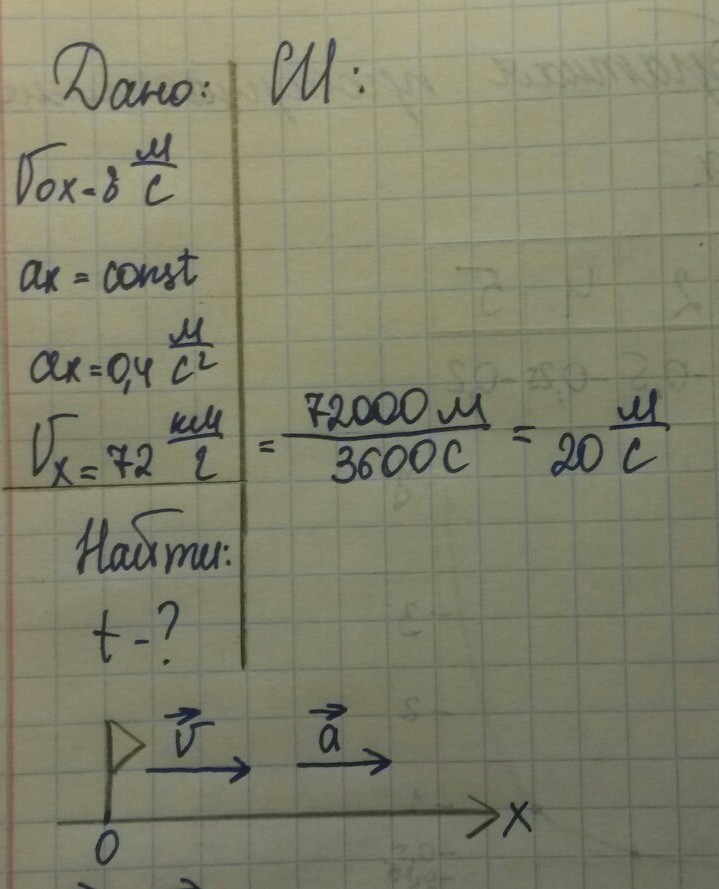 Дано: СИ:
υ₀ₓ = 8 м/с
aₓ = const
aₓ = 0,4 м/с²
υₓ = 72 км/г = 72000 м/3600 с = 20 м/с
Найти:
t - ?
υ a
0 X